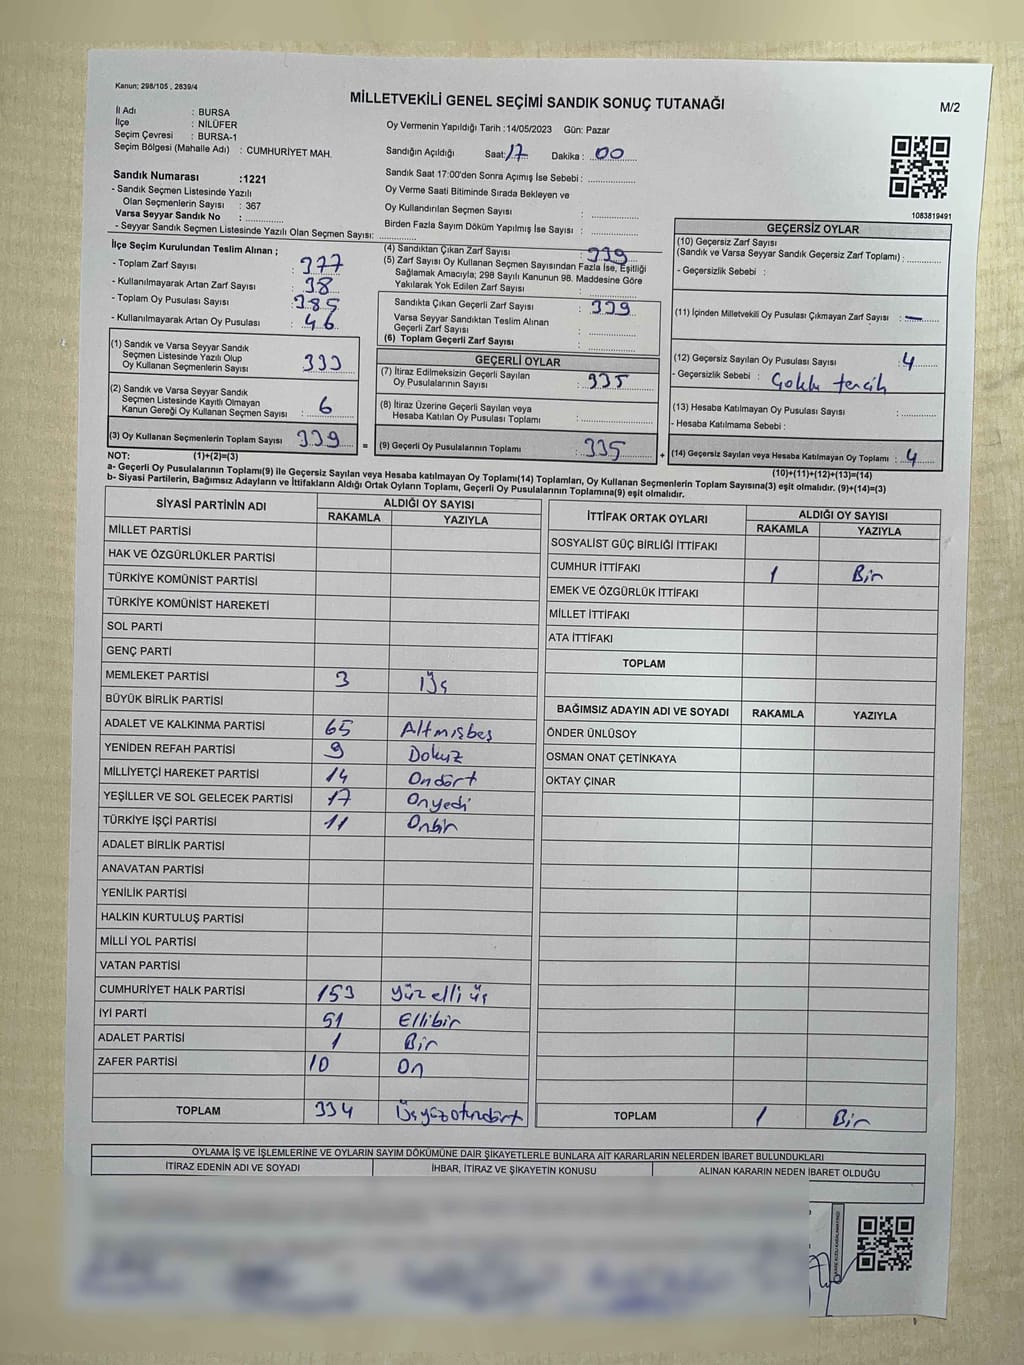 Kanun; 298/105 , 2839/4
MİLLETVEKİLİ GENEL SEÇİMİ SANDIK SONUÇ TUTANAĞI
M/2
İl Adı : BURSA
İlçe : NİLÜFER
Seçim Çevresi : BURSA-1
Seçim Bölgesi (Mahalle Adı) : CUMHURİYET MAH.
Oy Vermenin Yapıldığı Tarih :14/05/2023 Gün: Pazar
Sandığın Açıldığı Saat: 17 Dakika : 00
Sandık Saat 17:00'den Sonra Açımış İse Sebebi :
Oy Verme Saati Bitiminde Sırada Bekleyen ve
Oy Kullandırılan Seçmen Sayısı :
Birden Fazla Sayım Döküm Yapılmış İse Sayısı :
1083819491
Sandık Numarası :1221
- Sandık Seçmen Listesinde Yazılı
Olan Seçmenlerin Sayısı : 367
Varsa Seyyar Sandık No :
- Seyyar Sandık Seçmen Listesinde Yazılı Olan Seçmen Sayısı:
İlçe Seçim Kurulundan Teslim Alınan ;
- Toplam Zarf Sayısı : 377
- Kullanılmayarak Artan Zarf Sayısı : 38
- Toplam Oy Pusulası Sayısı : 385
- Kullanılmayarak Artan Oy Pusulası : 46
(1) Sandık ve Varsa Seyyar Sandık
Seçmen Listesinde Yazılı Olup
Oy Kullanan Seçmenlerin Sayısı : 333
(2) Sandık ve Varsa Seyyar Sandık
Seçmen Listesinde Kayıtlı Olmayan
Kanun Gereği Oy Kullanan Seçmen Sayısı : 6
(3) Oy Kullanan Seçmenlerin Toplam Sayısı : 339 =
(4) Sandıktan Çıkan Zarf Sayısı : 339
(5) Zarf Sayısı Oy Kullanan Seçmen Sayısından Fazla İse, Eşitliği
Sağlamak Amacıyla; 298 Sayılı Kanunun 98. Maddesine Göre
Yakılarak Yok Edilen Zarf Sayısı :
Sandıkta Çıkan Geçerli Zarf Sayısı : 339
Varsa Seyyar Sandıktan Teslim Alınan
Geçerli Zarf Sayısı :
(6) Toplam Geçerli Zarf Sayısı :
GEÇERLİ OYLAR
(7) İtiraz Edilmeksizin Geçerli Sayılan
Oy Pusulalarının Sayısı : 335
(8) İtiraz Üzerine Geçerli Sayılan veya
Hesaba Katılan Oy Pusulası Toplamı :
(9) Geçerli Oy Pusulalarının Toplamı : 335 +
GEÇERSİZ OYLAR
(10) Geçersiz Zarf Sayısı
(Sandık ve Varsa Seyyar Sandık Geçersiz Zarf Toplamı) :
- Geçersizlik Sebebi :
(11) İçinden Milletvekili Oy Pusulası Çıkmayan Zarf Sayısı : —
(12) Geçersiz Sayılan Oy Pusulası Sayısı : 4
- Geçersizlik Sebebi : Çoklu tercih
(13) Hesaba Katılmayan Oy Pusulası Sayısı :
- Hesaba Katılmama Sebebi :
(14) Geçersiz Sayılan veya Hesaba Katılmayan Oy Toplamı : 4
NOT: (1)+(2)=(3) (10)+(11)+(12)+(13)=(14)
a- Geçerli Oy Pusulalarının Toplamı(9) ile Geçersiz Sayılan veya Hesaba katılmayan Oy Toplamı(14) Toplamları, Oy Kullanan Seçmenlerin Toplam Sayısına(3) eşit olmalıdır. (9)+(14)=(3)
b- Siyasi Partilerin, Bağımsız Adayların ve İttifakların Aldığı Ortak Oyların Toplamı, Geçerli Oy Pusulalarının Toplamına(9) eşit olmalıdır.
SİYASİ PARTİNİN ADI ALDIĞI OY SAYISI
RAKAMLA YAZIYLA
MİLLET PARTİSİ
HAK VE ÖZGÜRLÜKLER PARTİSİ
TÜRKİYE KOMÜNİST PARTİSİ
TÜRKİYE KOMÜNİST HAREKETİ
SOL PARTİ
GENÇ PARTİ
MEMLEKET PARTİSİ 3 Üç
BÜYÜK BİRLİK PARTİSİ
ADALET VE KALKINMA PARTİSİ 65 Altmışbeş
YENİDEN REFAH PARTİSİ 9 Dokuz
MİLLİYETÇİ HAREKET PARTİSİ 14 Ondört
YEŞİLLER VE SOL GELECEK PARTİSİ 17 Onyedi
TÜRKİYE İŞÇİ PARTİSİ 11 Onbir
ADALET BİRLİK PARTİSİ
ANAVATAN PARTİSİ
YENİLİK PARTİSİ
HALKIN KURTULUŞ PARTİSİ
MİLLİ YOL PARTİSİ
VATAN PARTİSİ
CUMHURİYET HALK PARTİSİ 153 yüz elli üç
İYİ PARTİ 51 Ellibir
ADALET PARTİSİ 1 Bir
ZAFER PARTİSİ 10 On
TOPLAM 334 Üçyüzotuzdört
İTTİFAK ORTAK OYLARI ALDIĞI OY SAYISI
RAKAMLA YAZIYLA
SOSYALİST GÜÇ BİRLİĞİ İTTİFAKI
CUMHUR İTTİFAKI 1 Bir
EMEK VE ÖZGÜRLÜK İTTİFAKI
MİLLET İTTİFAKI
ATA İTTİFAKI
TOPLAM
BAĞIMSIZ ADAYIN ADI VE SOYADI RAKAMLA YAZIYLA
ÖNDER ÜNLÜSOY
OSMAN ONAT ÇETİNKAYA
OKTAY ÇINAR
TOPLAM 1 Bir
OYLAMA İŞ VE İŞLEMLERİNE VE OYLARIN SAYIM DÖKÜMÜNE DAİR ŞİKAYETLERLE BUNLARA AİT KARARLARIN NELERDEN İBARET BULUNDUKLARI
İTİRAZ EDENİN ADI VE SOYADI İHBAR, İTİRAZ VE ŞİKAYETİN KONUSU ALINAN KARARIN NEDEN İBARET OLDUĞU